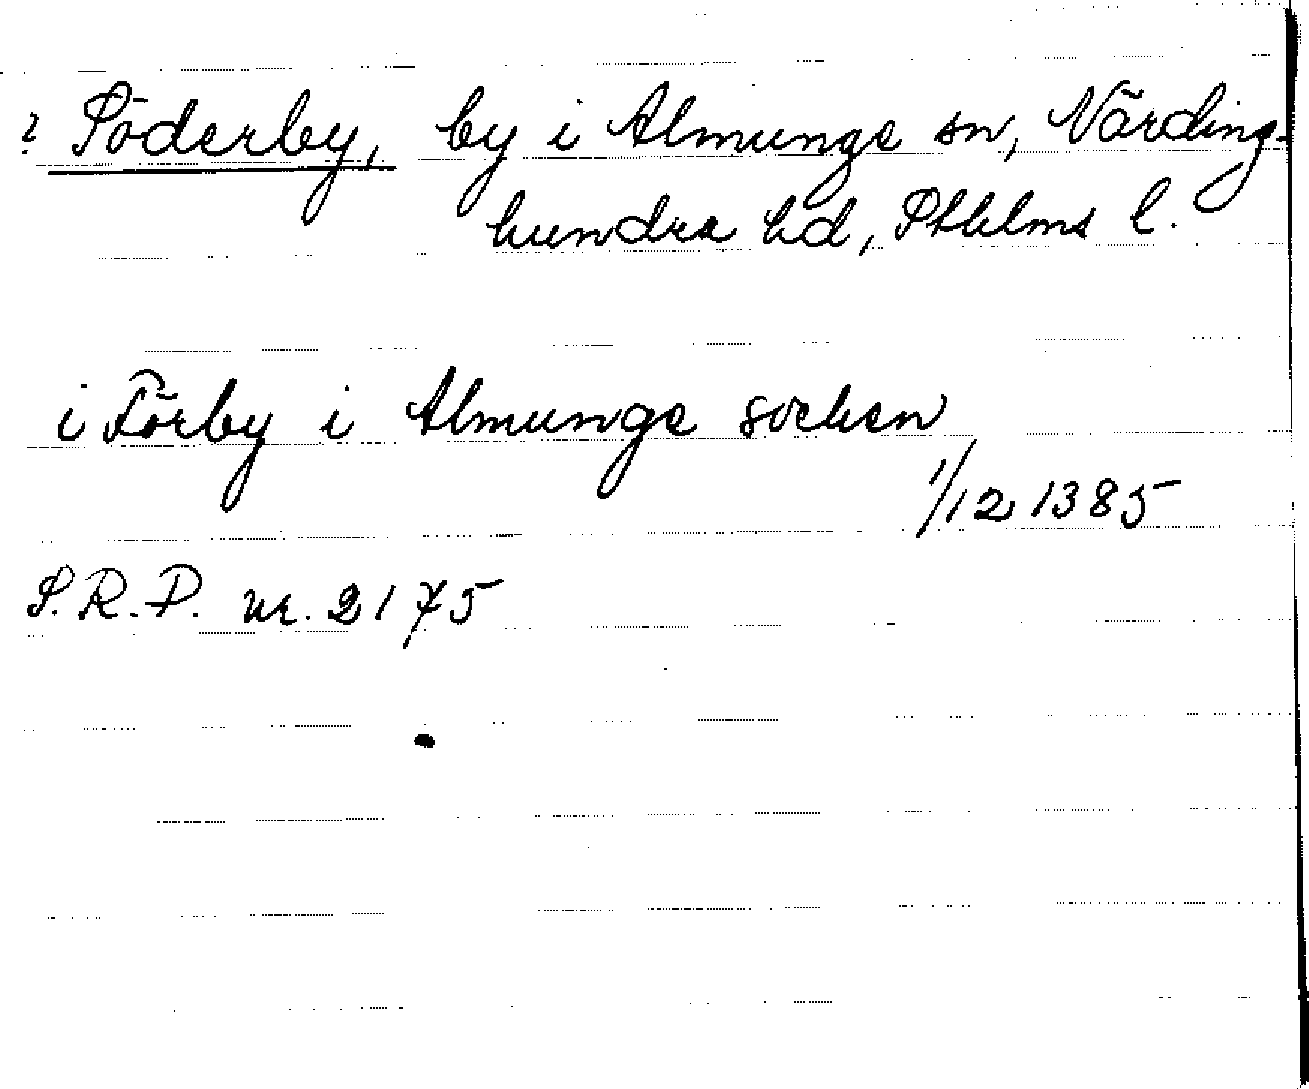 ? Söderby, by i Almunge sn, Närding-
hundra hd, Sthlms l.
i Förby i Almunge socken
1/12 1385
S.R.P. nr. 2175